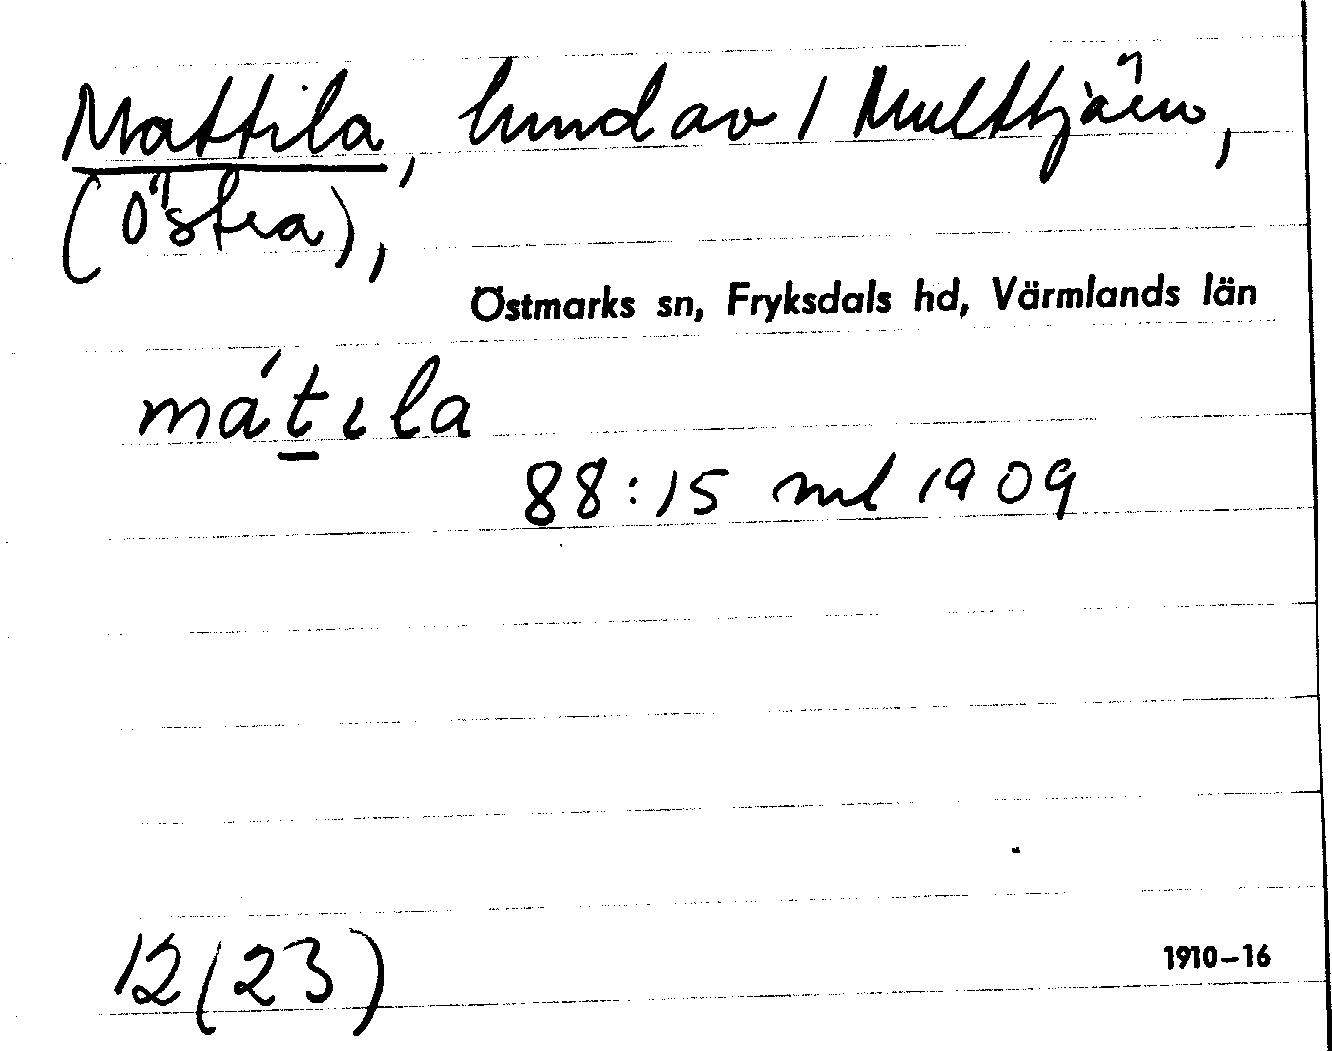 Mattila, hmd av 1 Multtjärn,
(Östra),
Östmarks sn, Fryksdals hd, Värmlands län
mát̲ıla
88:15 ml 1909
12(23)
1910–16